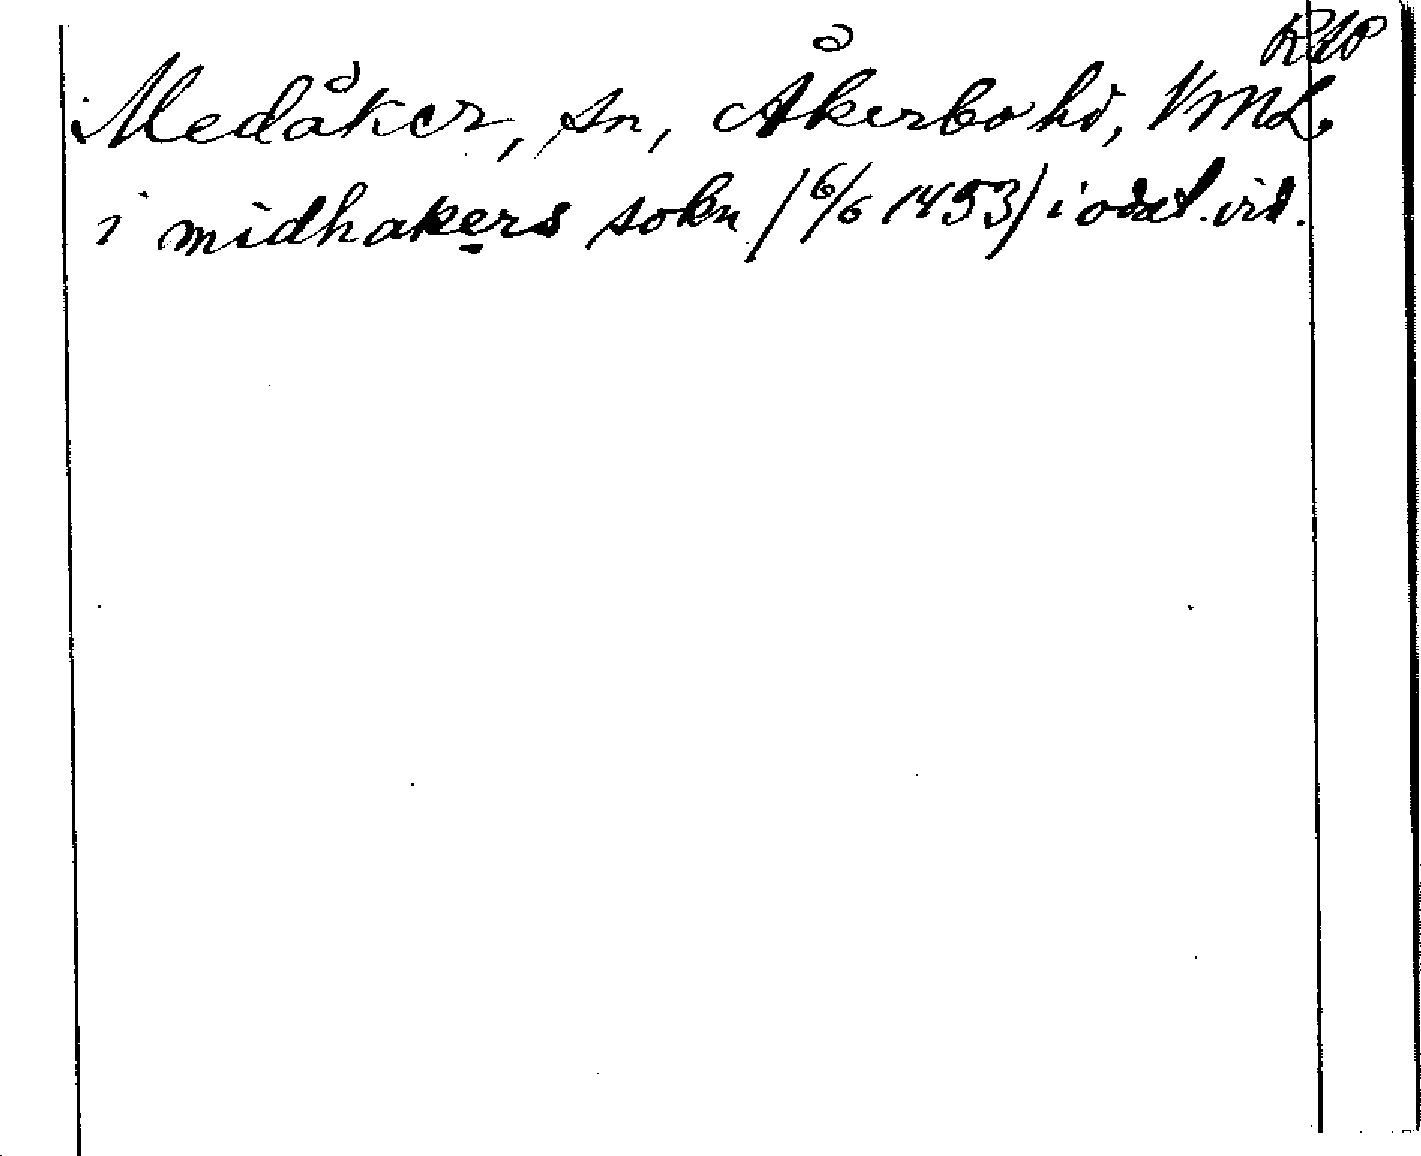 RAP
Medåker, sn, Åkerbo hd, VML.
i midhakers sokn (6/6 1453) i odat. vid.